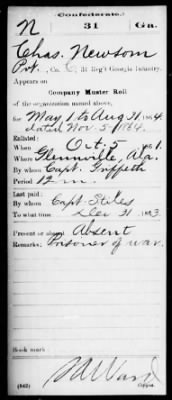 (Confederate.)
N 31 Ga.
Chas. Newsom
Pvt., Co. C, 31 Reg't Georgia Infantry.
Appears on
Company Muster Roll
of the organization named above,
for May 1 to Aug 31, 1864.
dated Nov. 5, 1864.
Enlisted:
When Oct. 5, 1861.
Where Glennville, Ala.
By whom Capt. Griffeth
Period 12 m.
Last paid:
By whom Capt. Stiles
To what time Dec 31, 1863.
Present or absent Absent
Remarks: Prisoner of war.
Book mark:
(642) Copyist.